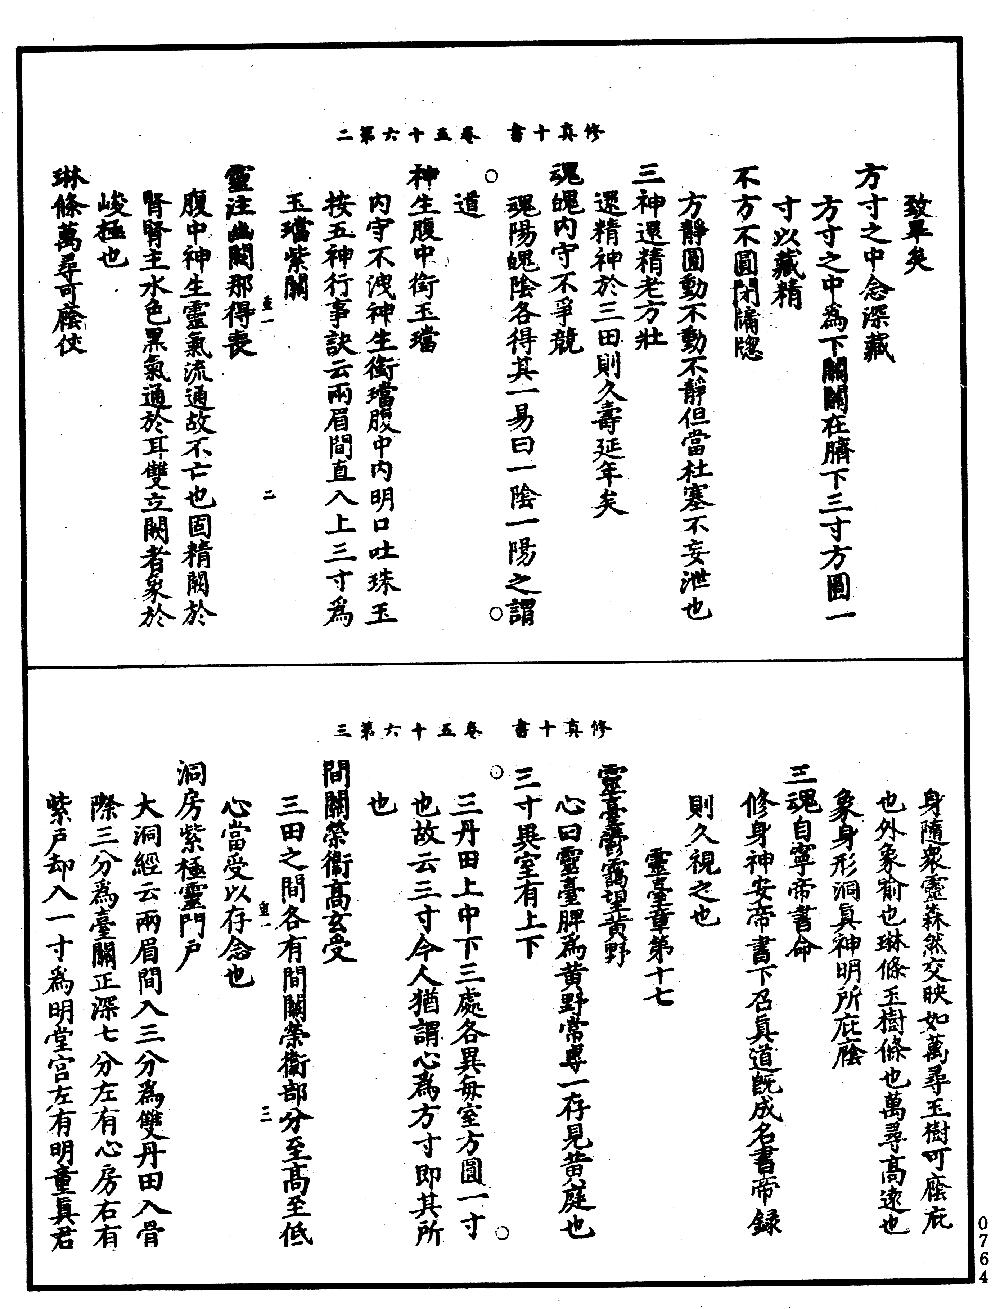 修真十書　卷五十六第二
致畢矣
方寸之中念深藏
方寸之中為下關關在臍下三寸方圓一
寸以藏精
不方不圓閉牖牕
方靜圓動不動不靜但當杜塞不妄泄也
三神還精老方壯
還精神於三田則久壽延年矣
魂魄內守不爭競
魂陽魄陰各得其一易曰一陰一陽之謂
道
神生腹中銜玉璫
內守不洩神生銜璫腹中內明口吐珠玉
按五神行事訣云兩眉間直入上三寸為
玉璫紫闕
靈注幽闕那得喪
腹中神生靈氣流通故不亡也固精闕於
腎腎主水色黑氣通於耳雙立闕者象於
峻極也
琳條萬尋可廕仗
重一
二
修真十書　卷五十六第三
身隨衆靈森然交映如萬尋玉樹可廕庇
也外象窬也琳條玉樹條也萬尋高遠也
象身形洞真神明所庇廕
三魂自寧帝書命
修身神安帝書下召真道既成名書帝録
則久視之也
靈臺章第十七
靈臺鬱靄望黄野
心曰靈臺脾為黄野常尊一存見黄庭也
三寸異室有上下
三丹田上中下三處各異每室方圓一寸
也故云三寸今人猶謂心為方寸即其所
也
間關榮衛高玄受
三田之間各有間關榮衛部分至高至低
心當受以存念也
洞房紫極靈門户
大洞經云兩眉間入三分為雙丹田入骨
際三分為臺闕正深七分左有心房右有
紫户却入一寸為明堂宫左有明童真君
重一
三
0764